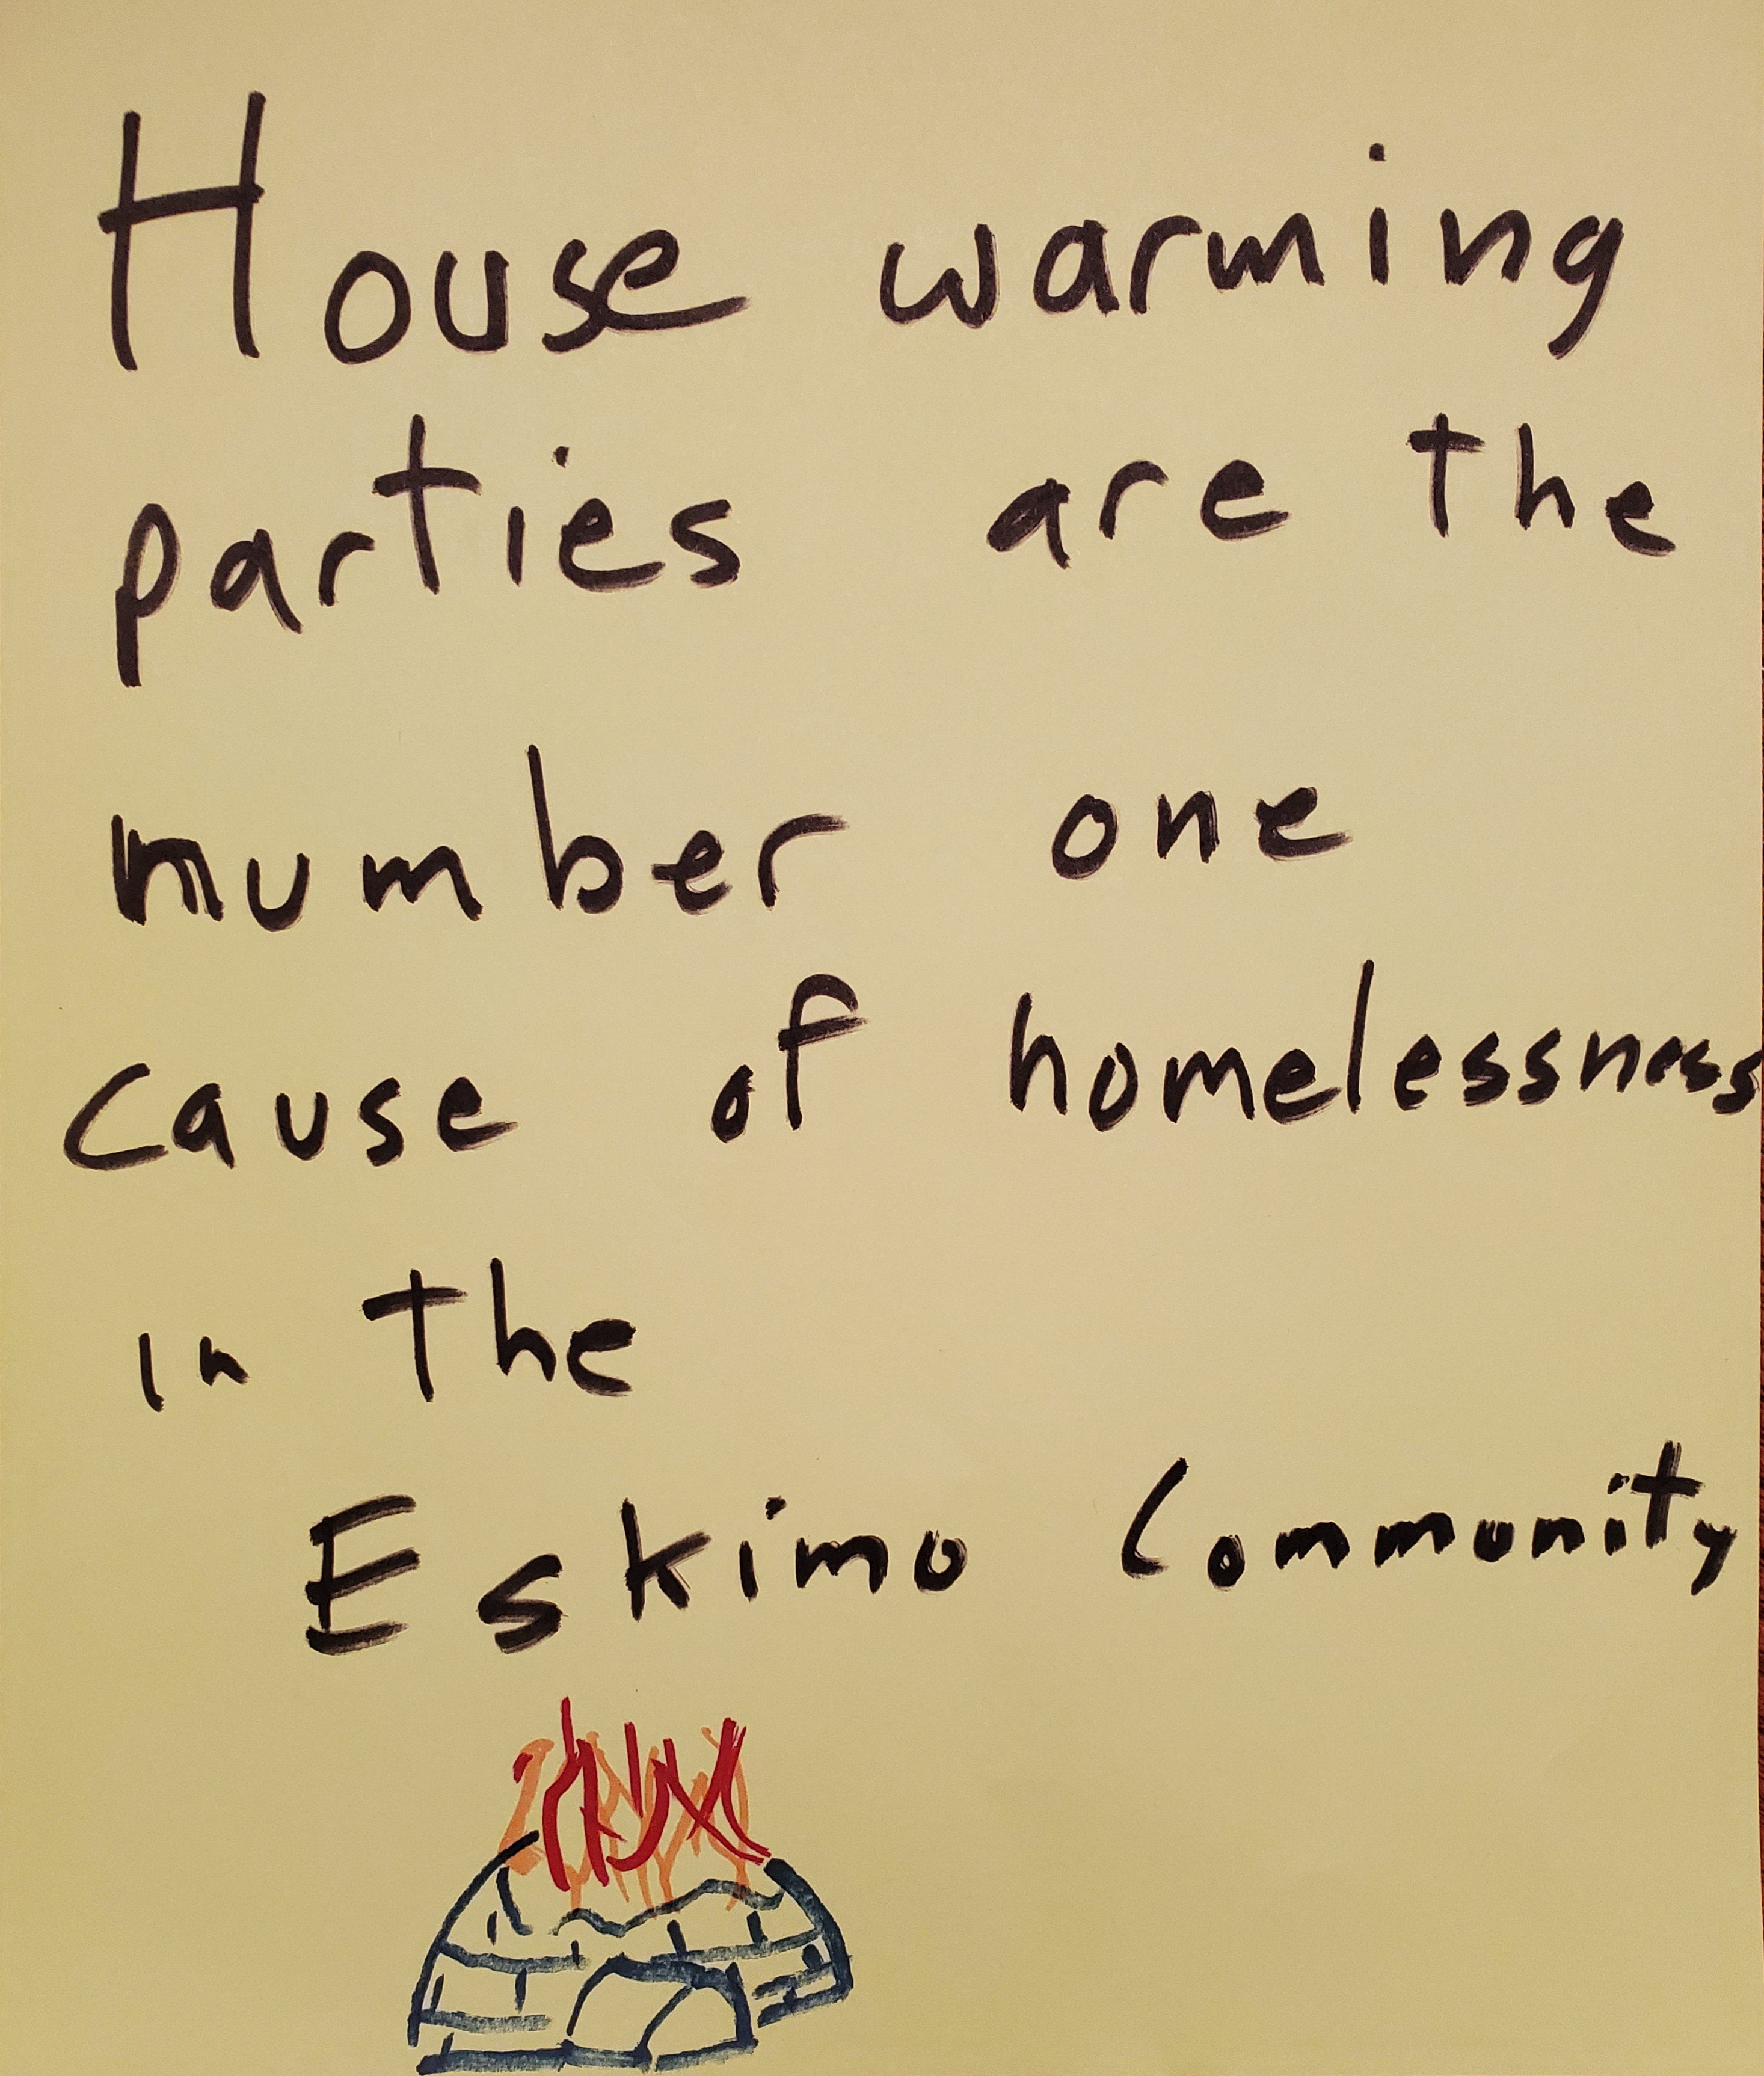 House warming
parties are the
number one
cause of homelessness
in the
Eskimo Community